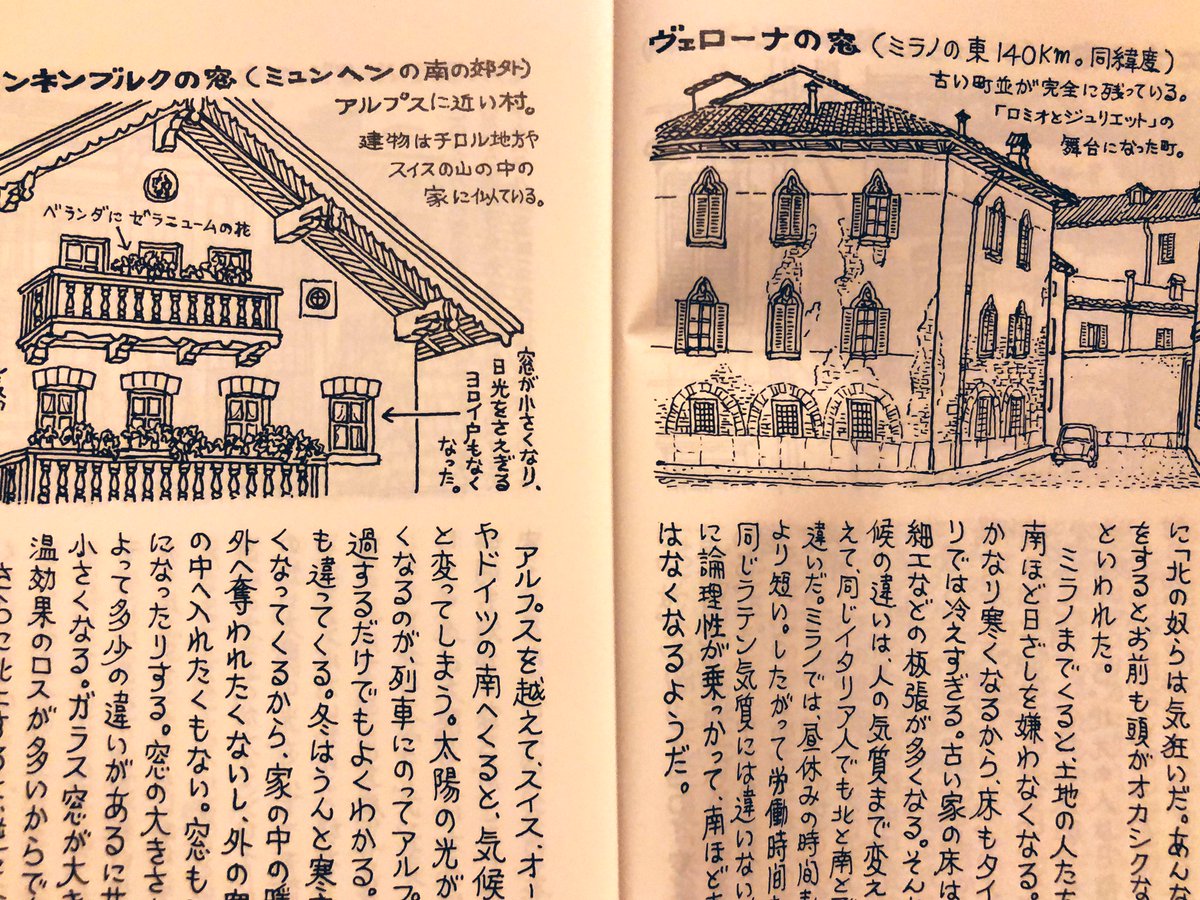 ヴェローナの窓（ミラノの東140Km。同緯度）
古い町並が完全に残っている。
「ロミオとジュリエット」の
舞台になった町。
に「北の奴らは気狂いだ。あんな
をすると、お前も頭がオカシクな
といわれた。
ミラノまでくると、土地の人たち
南ほど日ざしを嫌わなくなる。
かなり寒くなるから、床もタイ
リでは冷えすぎる。古い家の床は
細工などの板張が多くなる。そん
候の違いは、人の気質まで変え
えて、同じイタリア人でも北と南と
違いだ。ミラノでは、昼休みの時間も
より短い。したがって労働時間
同じラテン気質には違いない
に論理性が乗っかって、南ほど
はなくなるようだ。
ンキンブルクの窓（ミュンヘンの南の郊外）
アルプスに近い村。
建物はチロル地方や
スイスの山の中の
家に似ている。
ベランダにゼラニュームの花
窓が小さくなり、
日光をさえぎる
ヨロイ戸もなく
なった。
アルプスを越えて、スイス、オー
やドイツの南へくると、気候
と変ってしまう。太陽の光が
くなるのが、列車にのってアルプ
過するだけでもよくわかる。
も違ってくる。冬はうんと寒
くなってくるから、家の中の暖
外へ奪われたくないし、外の
の中へ入れたくもない。窓も
になったりする。窓の大きさ
よって多少の違いがあるにせ
小さくなる。ガラス窓が大き
温効果のロスが多いからで